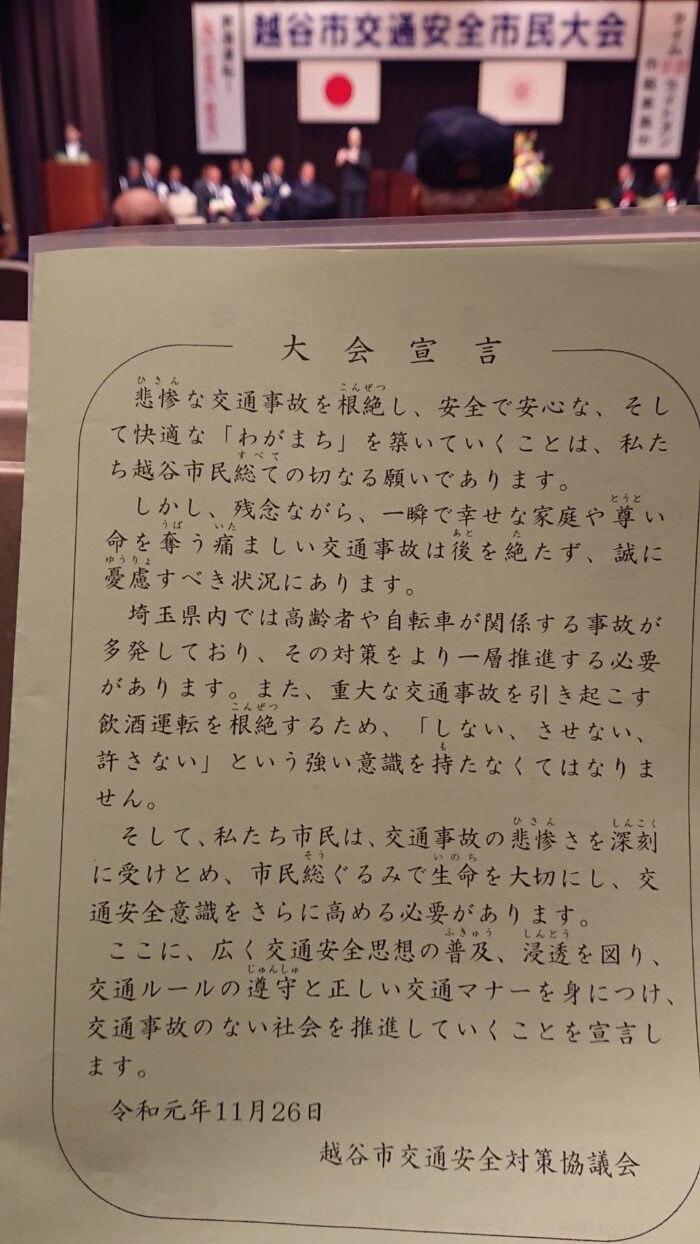 越谷市交通安全市民大会
大会宣言
悲惨な交通事故を根絶し、安全で安心な、そし
て快適な「わがまち」を築いていくことは、私た
ち越谷市民総ての切なる願いであります。
しかし、残念ながら、一瞬で幸せな家庭や尊い
命を奪う痛ましい交通事故は後を絶たず、誠に
憂慮すべき状況にあります。
埼玉県内では高齢者や自転車が関係する事故が
多発しており、その対策をより一層推進する必要
があります。また、重大な交通事故を引き起こす
飲酒運転を根絶するため、「しない、させない、
許さない」という強い意識を持たなくてはなりま
せん。
そして、私たち市民は、交通事故の悲惨さを深刻
に受けとめ、市民総ぐるみで生命を大切にし、交
通安全意識をさらに高める必要があります。
ここに、広く交通安全思想の普及、浸透を図り、
交通ルールの遵守と正しい交通マナーを身につけ、
交通事故のない社会を推進していくことを宣言し
ます。
令和元年11月26日
越谷市交通安全対策協議会